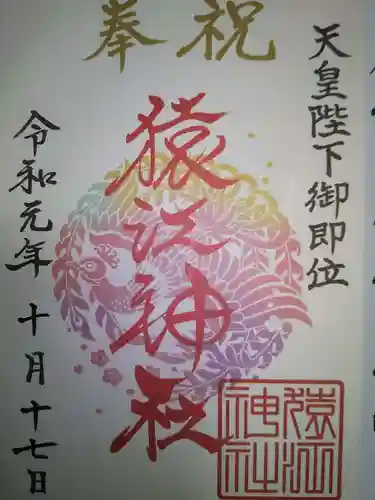 奉祝
天皇陛下御即位
猿江神社
令和元年十月十七日
猿江
神社